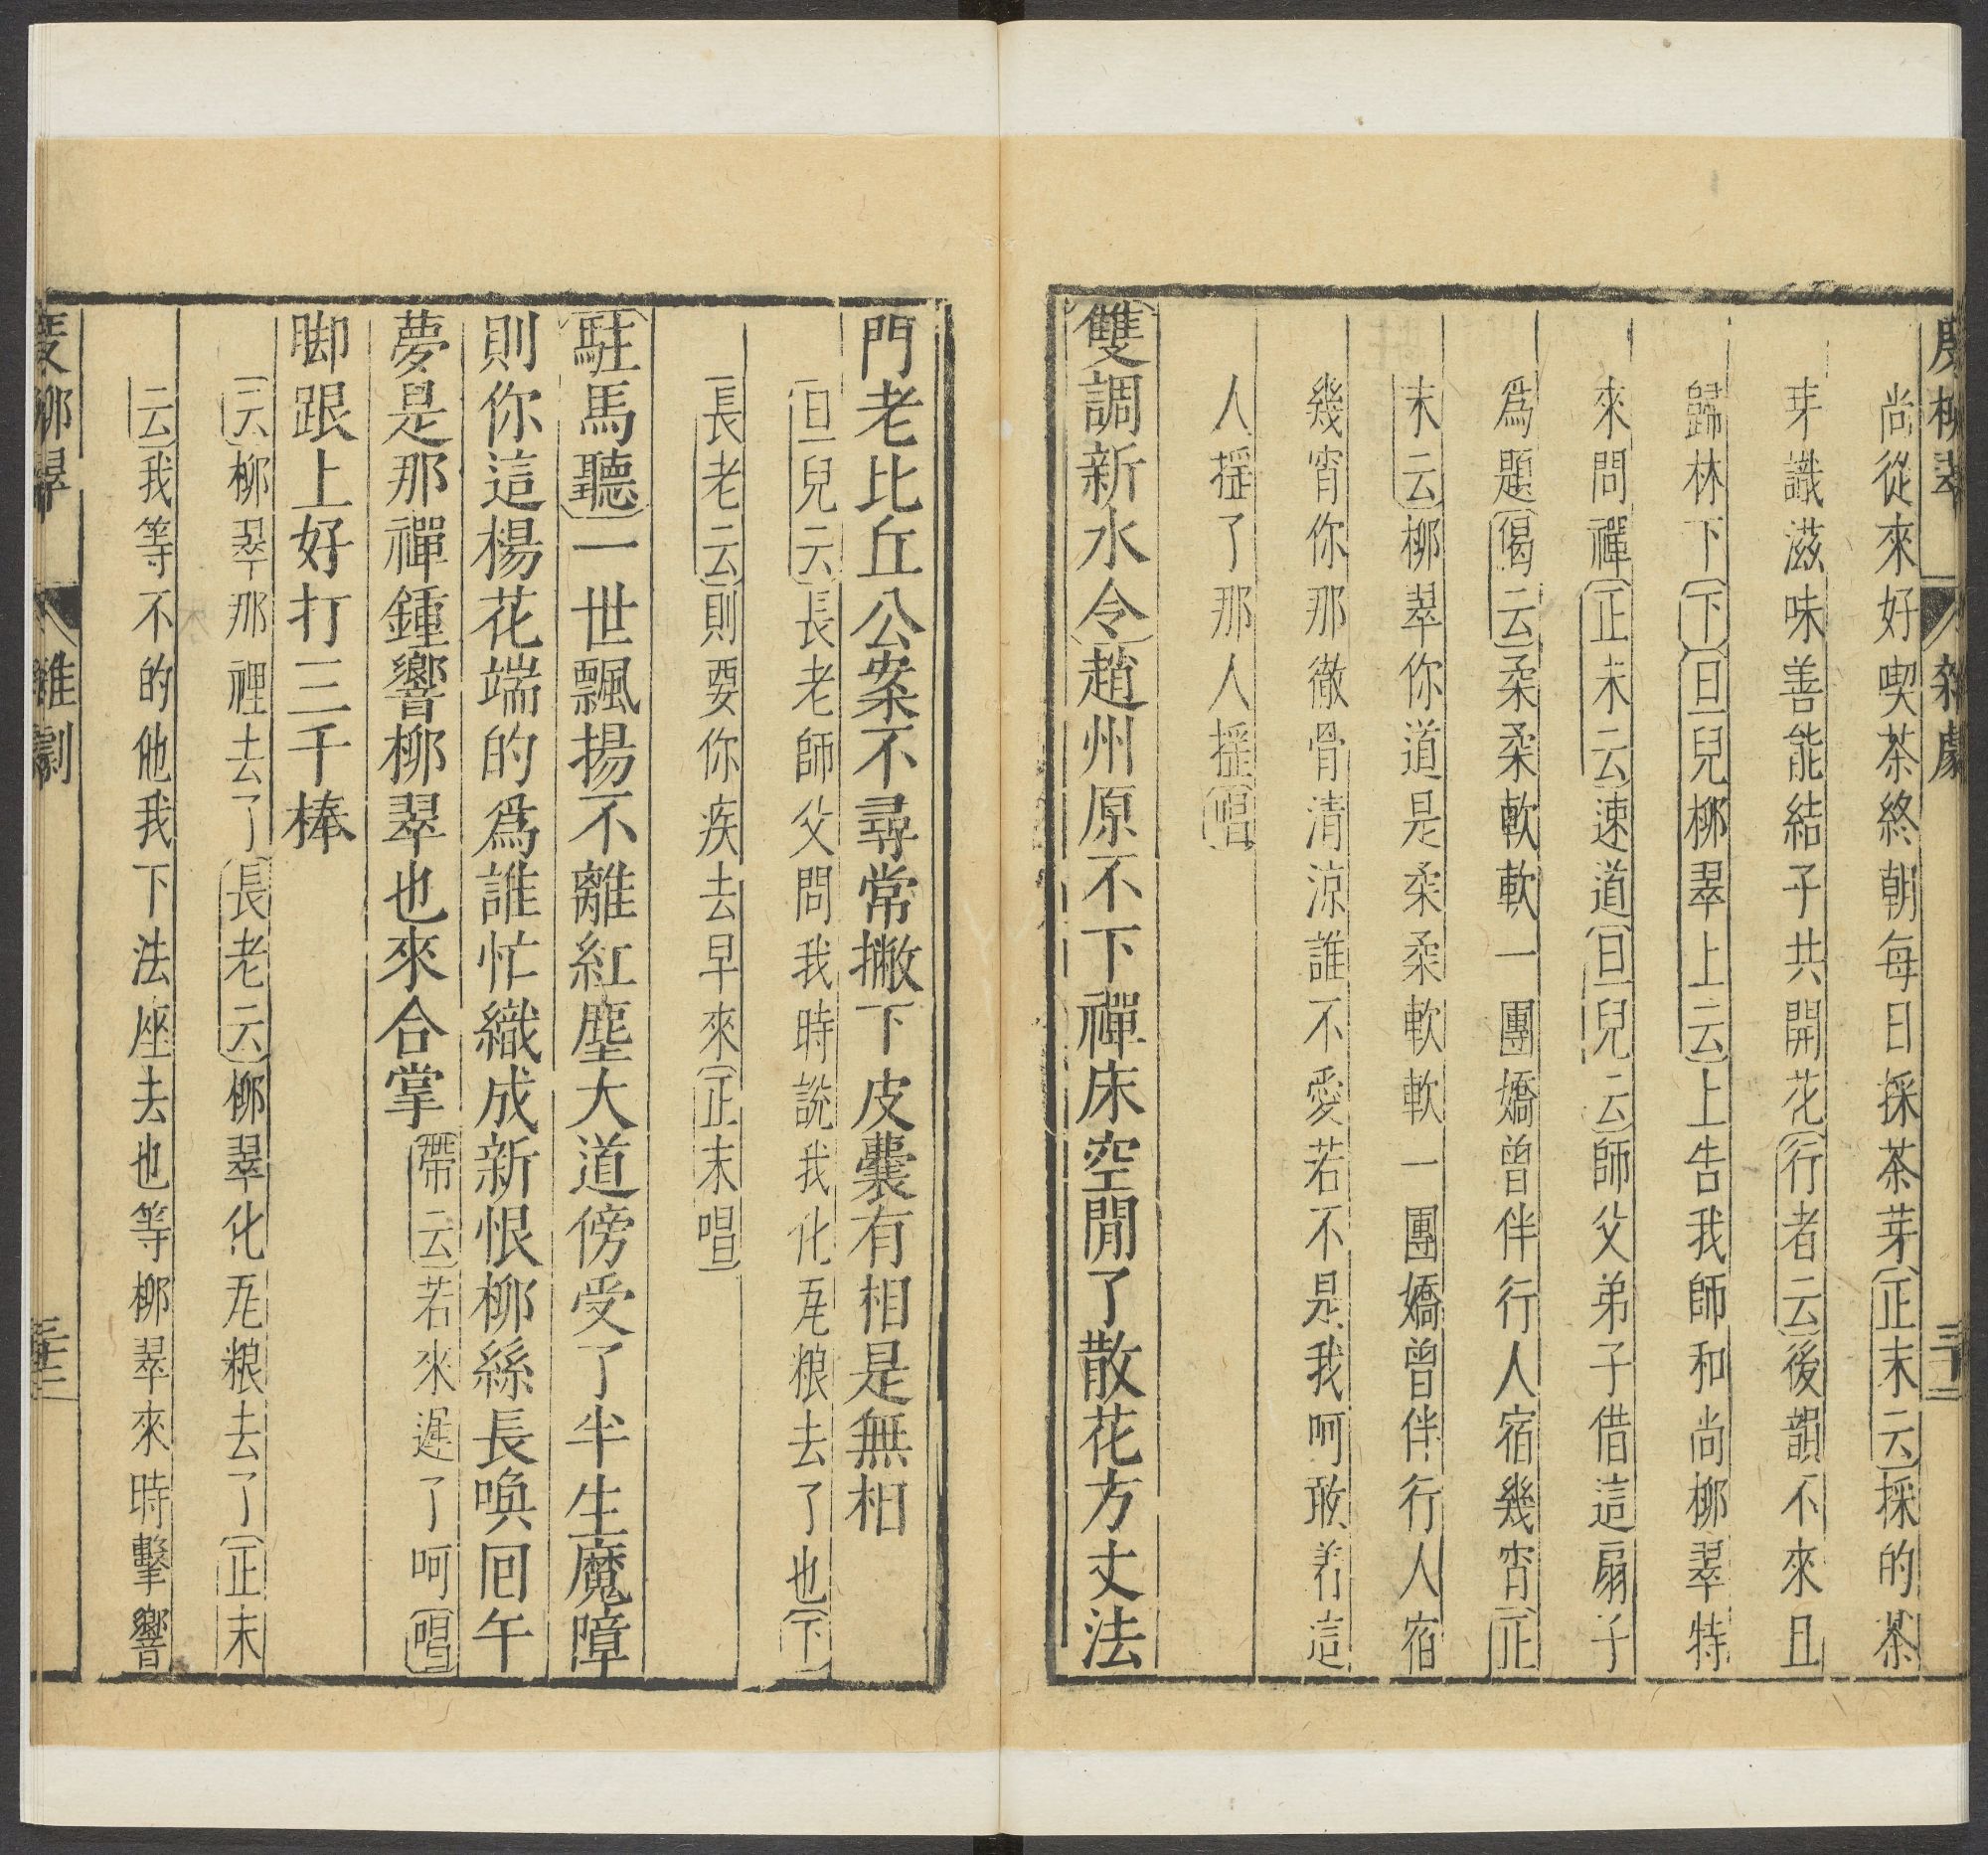 度柳翠 雜劇 三十二
尚從來好喫茶終朝每日採茶芽正末云採的茶
芽識滋味善能結子共開花行者云後韻不來且
歸林下下旦兒柳翠上云上告我師和尚柳翠特
來問禪正末云速道旦兒云師父弟子借這扇子
爲題偈云柔柔軟軟一團嬌曾伴行人宿幾宵正
末云柳翠你道是柔柔軟軟一團嬌曾伴行人宿
幾宵你那徹骨清涼誰不愛若不是我呵敢着這
人搖了那人搖唱
雙調新水令趙州原不下禪床空閒了散花方丈法
門老比丘公案不尋常撇下皮囊有相是無相
旦兒云長老師父問我時說我化瓦粮去了也下
長老云則要你疾去早來正末唱
駐馬聽一世飄揚不離紅塵大道傍受了半生魔障
則你這楊花端的爲誰忙織成新恨柳絲長喚回午
夢是那禪鍾響柳翠也來合掌帶云若來遲了呵唱
脚跟上好打三千棒
云柳翠那裡去了長老云柳翠化瓦粮去了正末
云我等不的他我下法座去也等柳翠來時擊響
度柳翠 雜劇 三十三